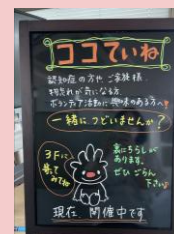 ココていね
認知症の方や、ご家族様、
物忘れが気になる方、
ボランティア活動に興味のある方へ!
一緒につどいませんか?
3Fに
来て
みてね
裏にちらしが
あります。
ぜひごらん
下さい
現在 開催中です